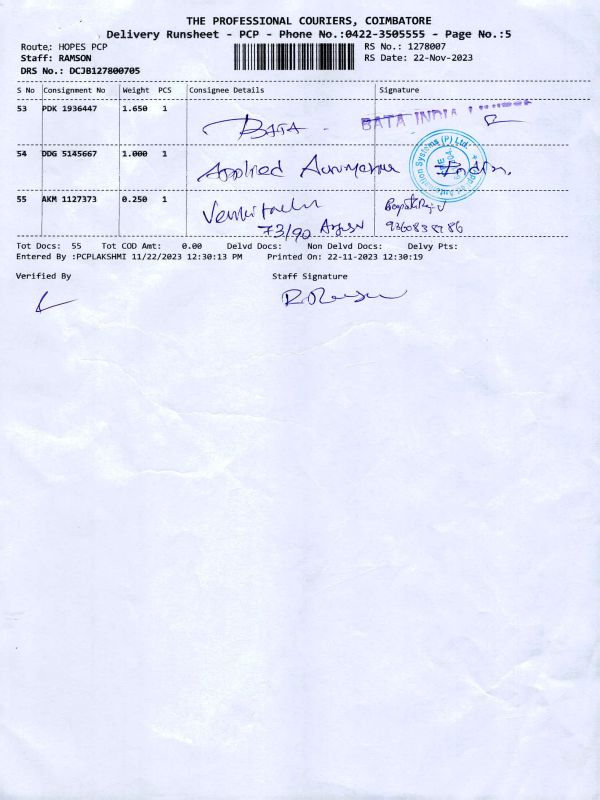 THE PROFESSIONAL COURIERS, COIMBATORE
Delivery Runsheet - PCP - Phone No.:0422-3505555 - Page No.:5
Route: HOPES PCP RS No.: 1278007
Staff: RAMSON RS Date: 22-Nov-2023
DRS No.: DCJB127800705
S No Consignment No Weight PCS Consignee Details Signature
53 PDK 1936447 1.650 1
BATA BATA INDIA
54 DDG 5145667 1.000 1
Applied India.
Systems (P) Ltd.
55 AKM 1127373 0.250 1
73/90 9360838786
Tot Docs: 55 Tot COD Amt: 0.00 Delvd Docs: Non Delvd Docs: Delvy Pts:
Entered By :PCPLAKSHMI 11/22/2023 12:30:13 PM Printed On: 22-11-2023 12:30:19
Verified By Staff Signature